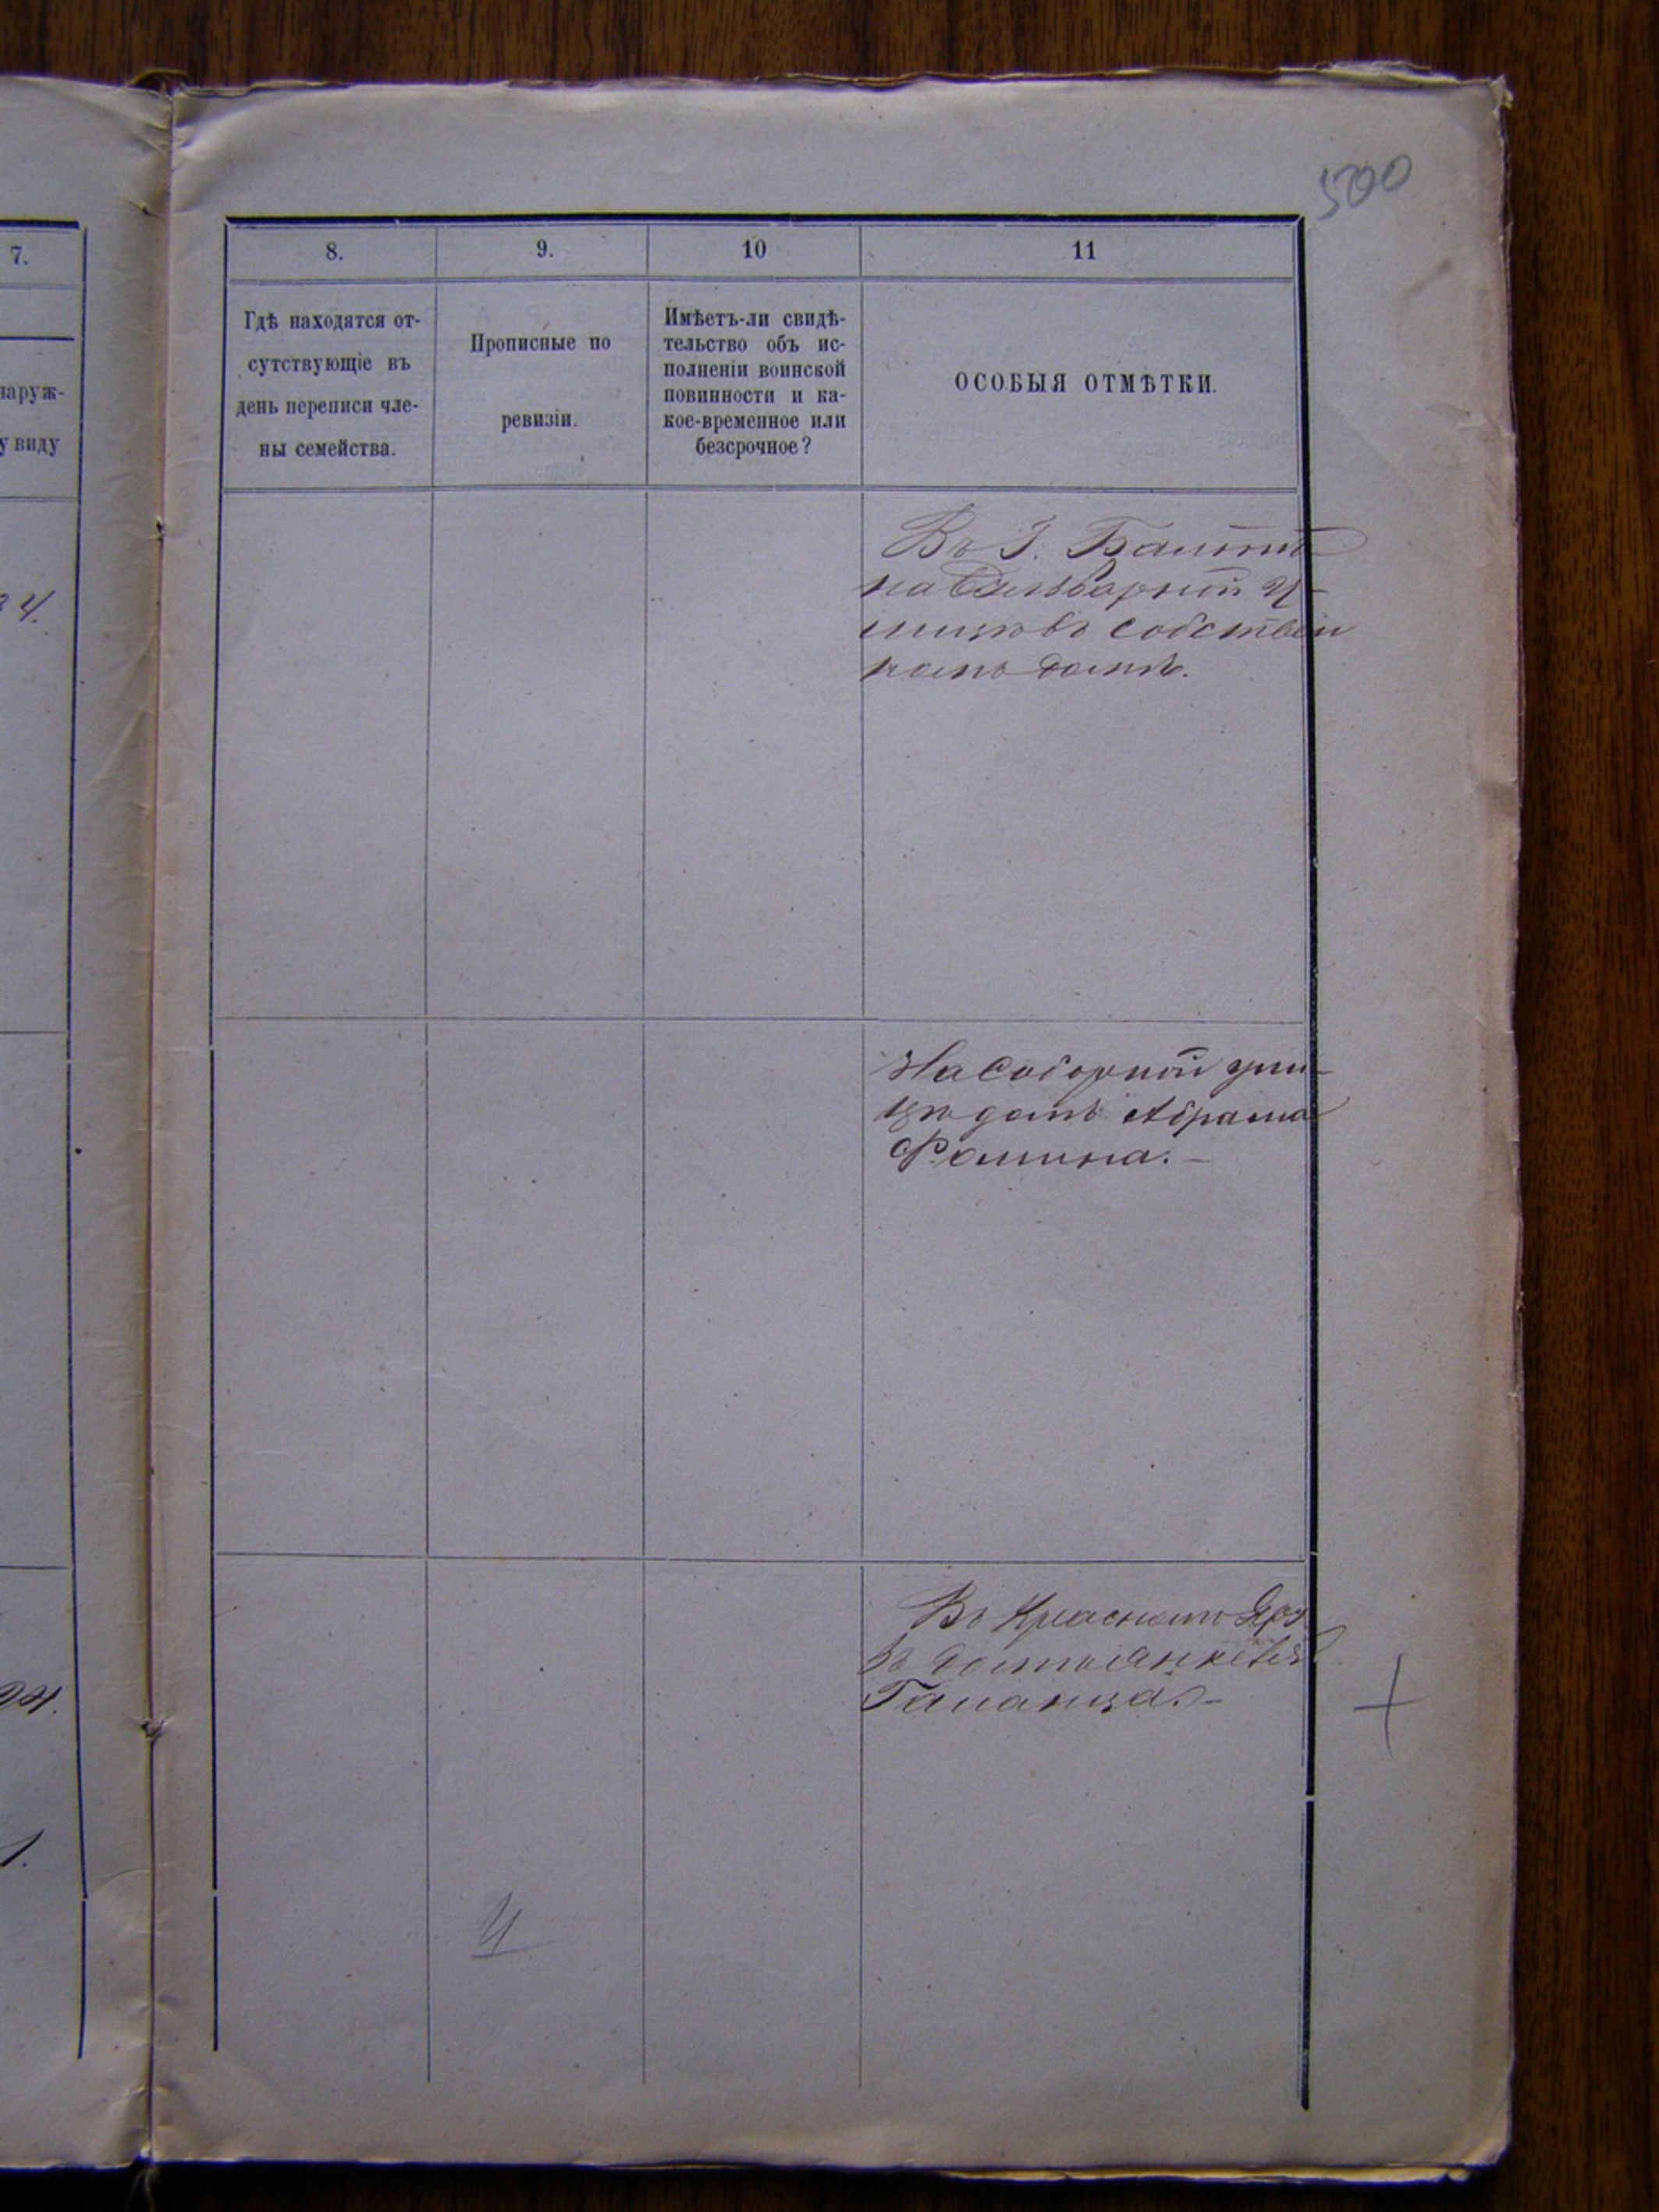 500
7.
наруж-
у виду
24.
8.
9.
10
11
Гдѣ находятся от-
сутствующіе въ
день переписи чле-
ны семейства.
Прописные по
ревизіи.
Имѣетъ-ли свидѣ-
тельство объ ис-
полненіи воинской
повинности и ка-
кое-временное или
безсрочное?
ОСОБЫЯ ОТМѢТКИ.
Въ Г. Балтѣ
на Бульварной у-
лицѣ въ собствен
номъ домѣ.
На Соборной ули-
цѣ домъ Абрама
Фомина.-
Въ Красномъ Яру
въ домѣ
4